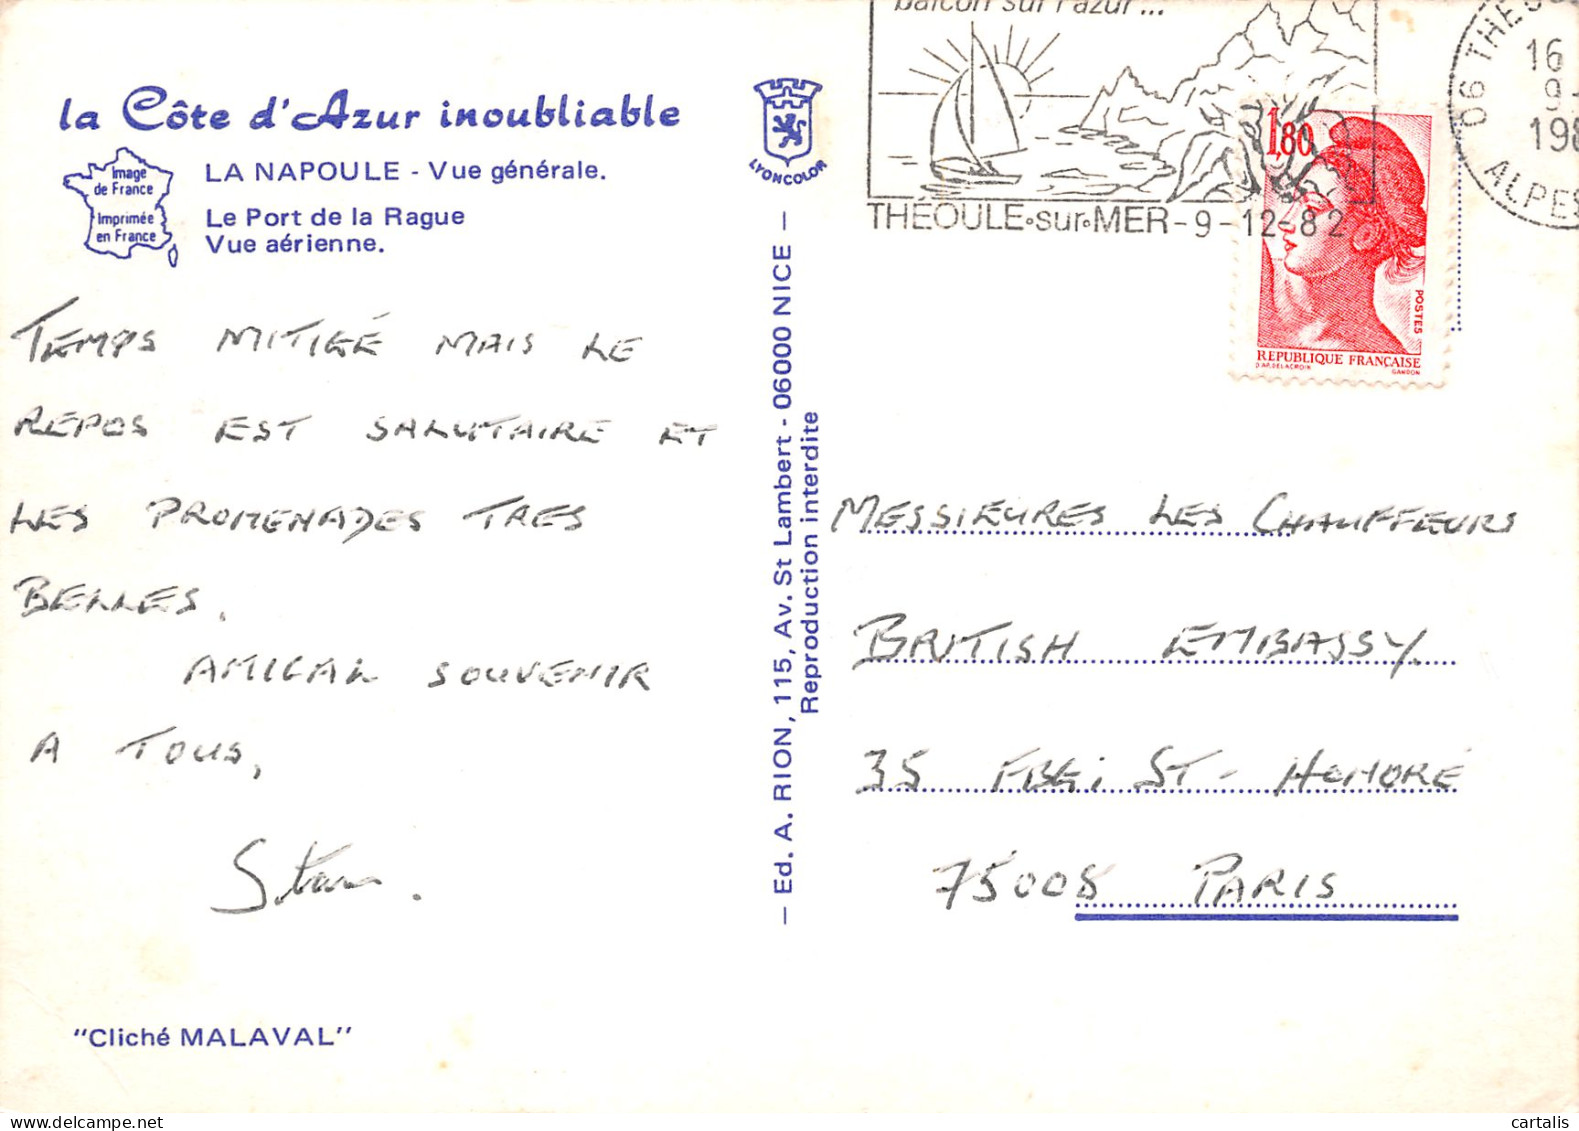 balcon sur l'azur...
06 THÉOU
16
9-
198
ALPES
THÉOULE-sur-MER-9-12-82
la Côte d'Azur inoubliable
Image
de France
Imprimée
en France
LA NAPOULE - Vue générale.
Le Port de la Rague
Vue aérienne.
LYONCOLOR
1,80
POSTES
REPUBLIQUE FRANÇAISE
D'AP. DELACROIX GANDON
TEMPS MITIGÉ MAIS LE
REPOS EST SALUTAIRE ET
LES PROMENADES TRES
BELLES.
AMICAL SOUVENIR
A TOUS,
"Cliché MALAVAL"
— Ed. A. RION, 115, Av. St Lambert - 06000 NICE —
Reproduction interdite
MESSIEURES LES CHAUFFEURS
BRITISH EMBASSY
35 FBG; ST-HONORÉ
75008 PARIS
cartalis